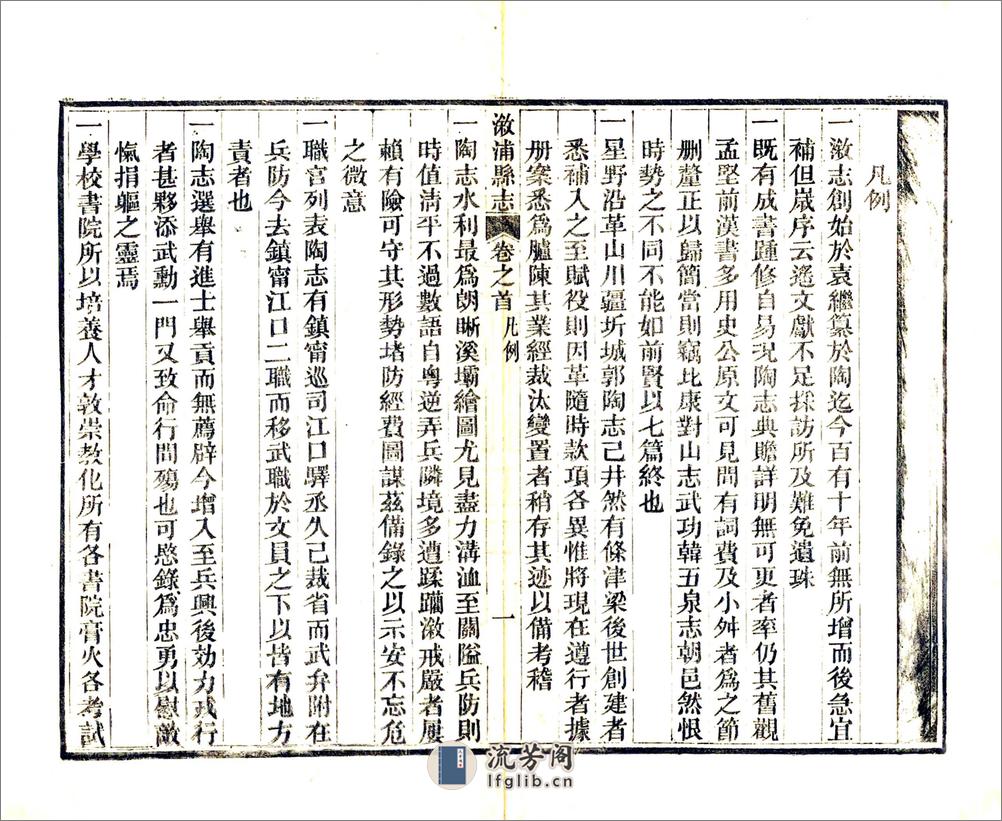 凡例
一溆志創始於袁繼纂於陶迄今百有十年前無所增而後急宜
補但歲序云遙文獻不足採訪所及難免遺珠
一既有成書踵修自易況陶志典贍詳明無可更者率仍其舊觀
孟堅前漢書多用史公原文可見間有詞費及小舛者爲之節
删釐正以歸簡當則竊比康對山志武功韓五泉志朝邑然恨
時勢之不同不能如前賢以七篇終也
一星野沿革山川疆圻城郭陶志己井然有條津梁後世創建者
悉補入之至賦役則因革隨時款項各異惟將現在遵行者據
册案悉爲臚陳其業經裁汰變置者稍存其迹以備考稽
溆浦縣志
卷之首
凡例
一
一陶志水利最爲朗晰溪壩繪圖尤見盡力溝洫至關隘兵防則
時值淸平不過數語自粤逆弄兵隣境多遭蹂躪溆戒嚴者屢
賴有險可守其形勢堵防經費圖謀兹備錄之以示安不忘危
之微意
一職官列表陶志有鎮甯巡司江口驛丞久己裁省而武弁附在
兵防今去鎮甯江口二職而移武職於文員之下以皆有地方
責者也
一陶志選舉有進士舉貢而無薦辟今增入至兵興後効力戎行
者甚夥添武勳一門又致命行間殤也可愍錄爲忠勇以慰敵
愾捐軀之靈焉
一學校書院所以培養人才敦崇教化所有各書院膏火各考試
流芳阁
lfglib.cn